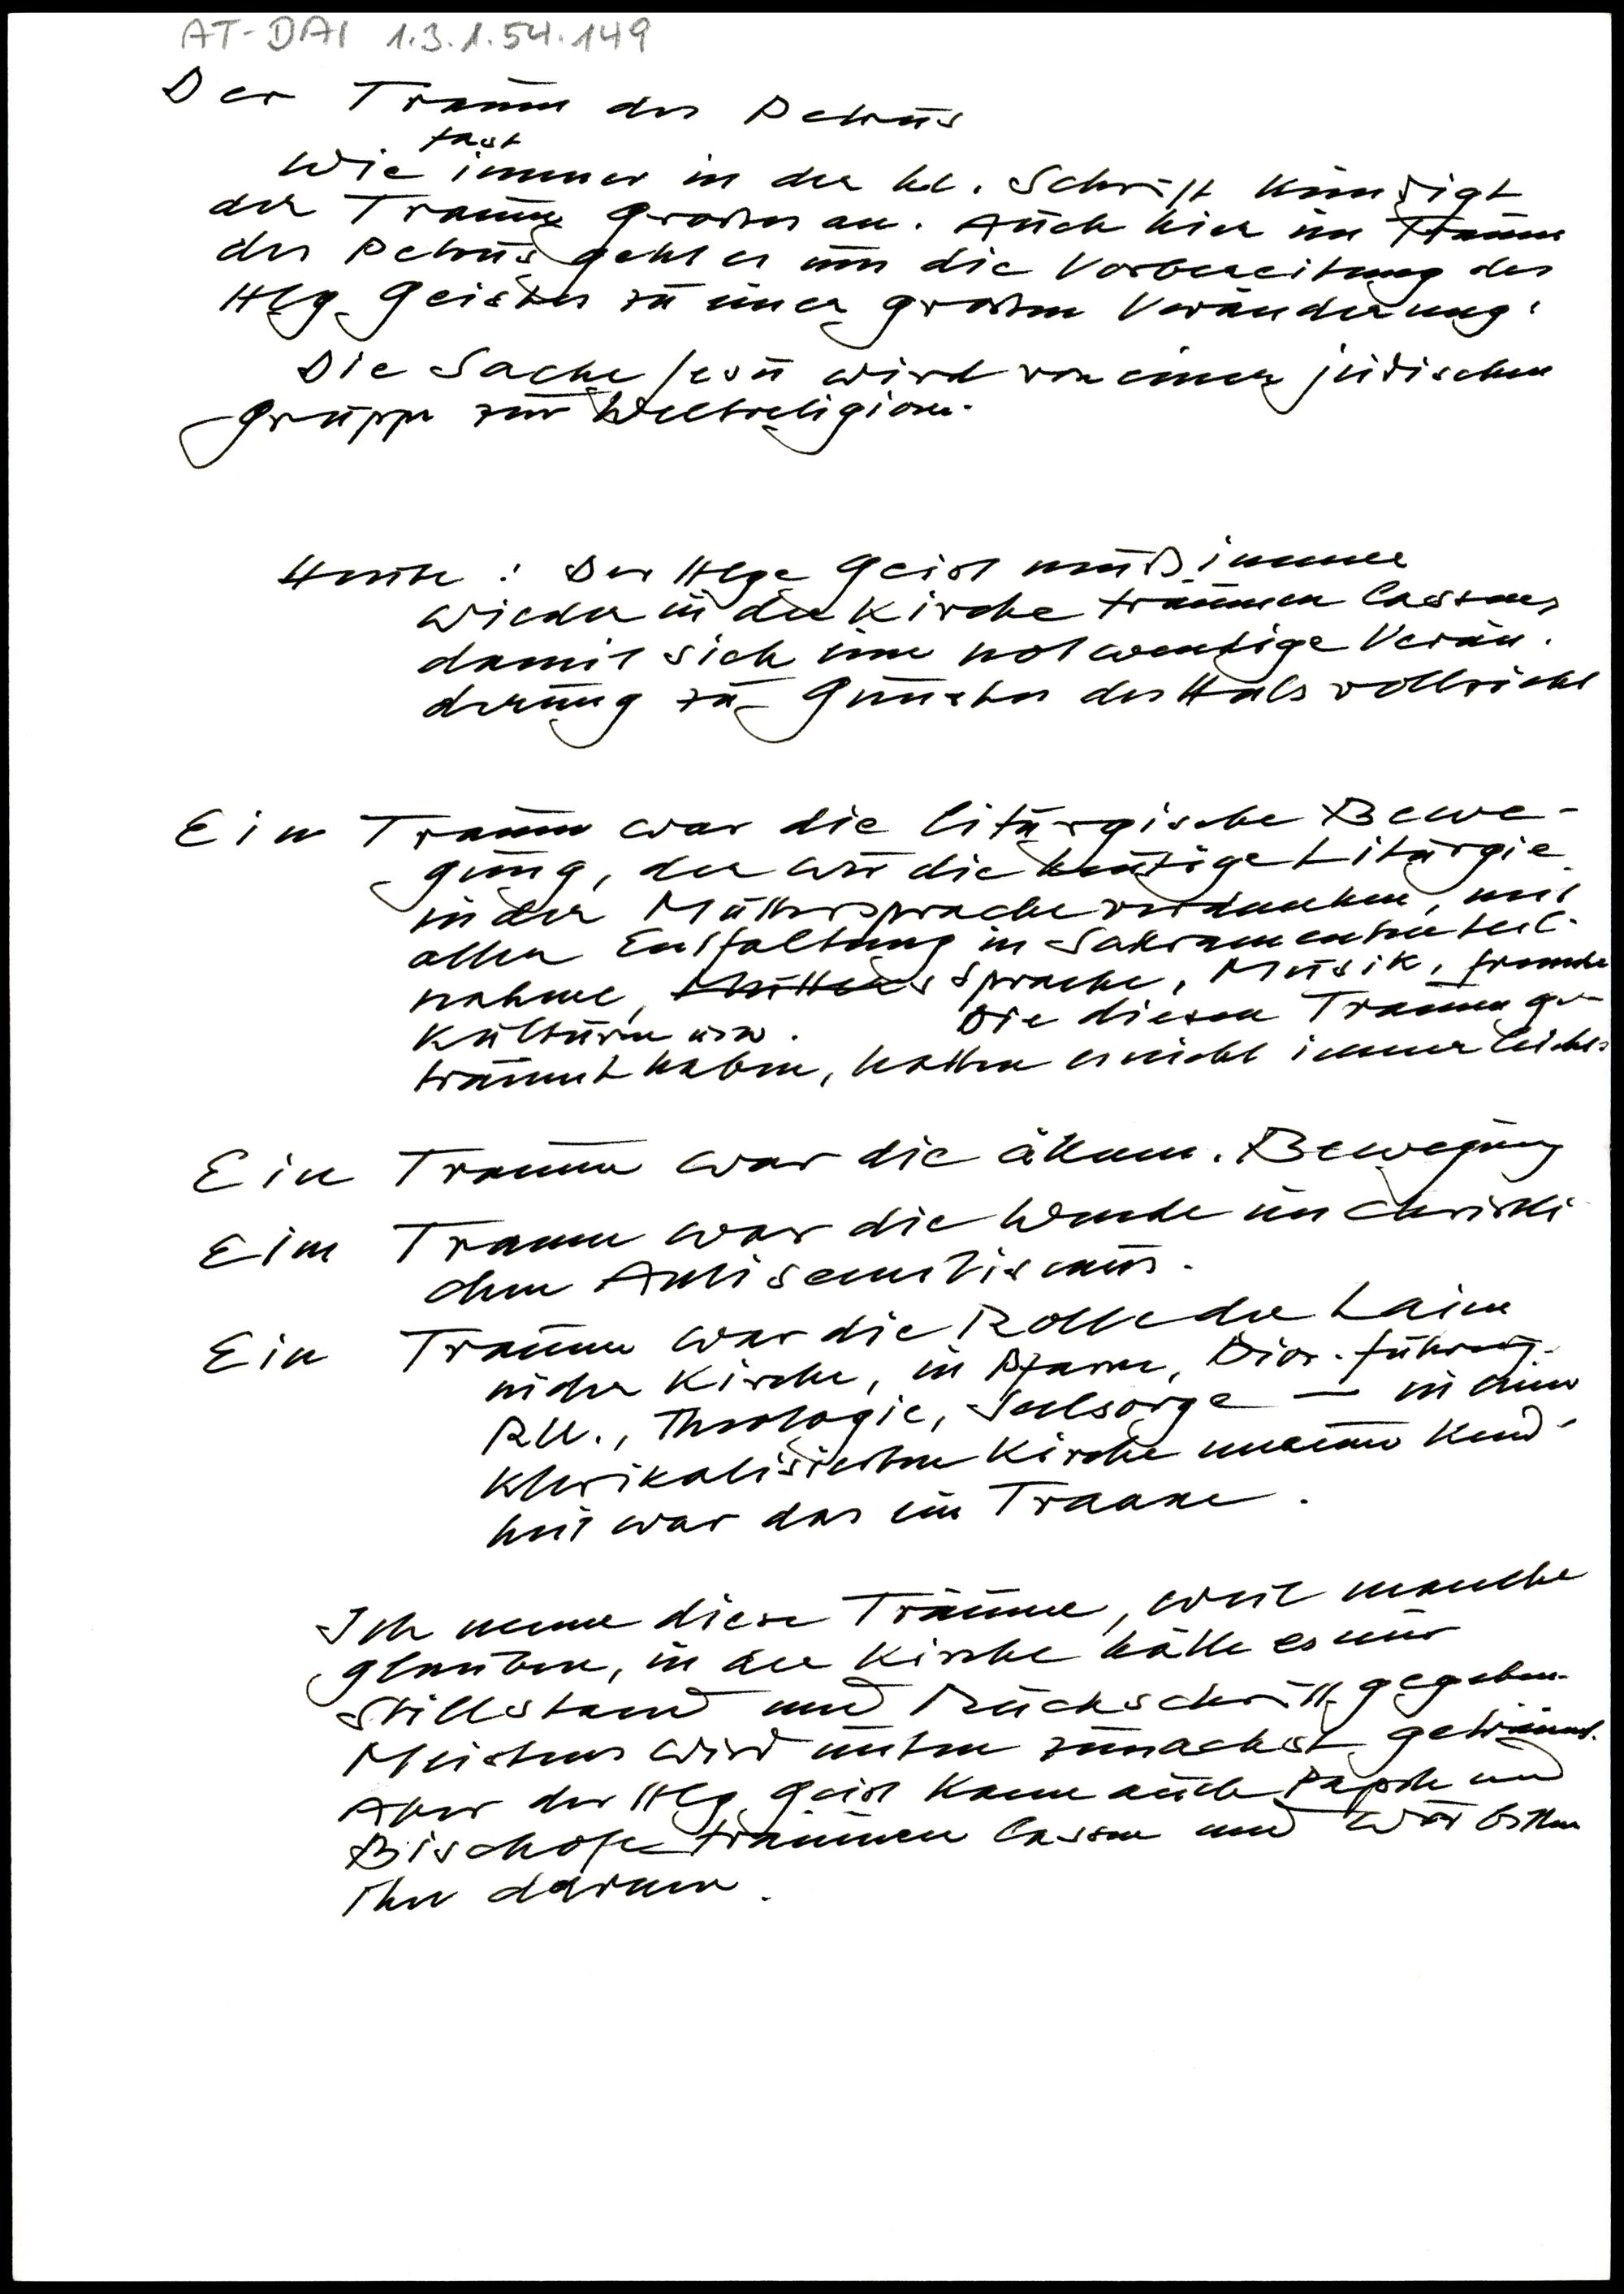 AT-DAI 1.3.1.54.149
Der Traum des Petrus
fast
Wie immer in der hl. Schrift kündigt
der Traum Großes an. Auch hier im Traum
des Petrus geht es um die Vorbereitung des
Hlg. Geistes zu einer großen Veränderung:
Die Sache Jesu wird von einer jüdischen
Gruppe zur Weltreligion.
Heute: Der Hlge Geist muß immer
wieder in der Kirche träumen lassen,
damit sich eine notwendige Verän-
derung zu Gunsten des Heils vollzieht
Ein Traum war die liturgische Bewe-
gung, der wir die heutige Liturgie
in der Muttersprache verdanken, mit
aller Entfaltung in Sakramententeil-
nahme, Sprache, Musik, fremde
Kulturen usw. Die diesen Traum ge-
träumt haben, hatten es nicht immer leicht.
Ein Traum war die ökum. Bewegung
Ein Traum war die Wende im christli
chen Antisemitismus.
Ein Traum war die Rolle der Laien
in der Kirche, in Pfarre, Diöz.-führung.
RU., Theologie, Seelsorge — in der
klerikalisierten Kirche meiner Kind-
heit war das ein Traum.
Ich nenne diese Träume, weil manche
glauben, in der Kirche hätte es nur
Stillstand und Rückschritt gegeben.
Meistens wird unten zunächst geträumt.
Aber der Hlg Geist kann auch Päpste und
Bischöfe träumen lassen und wir bitten
Ihn darum.